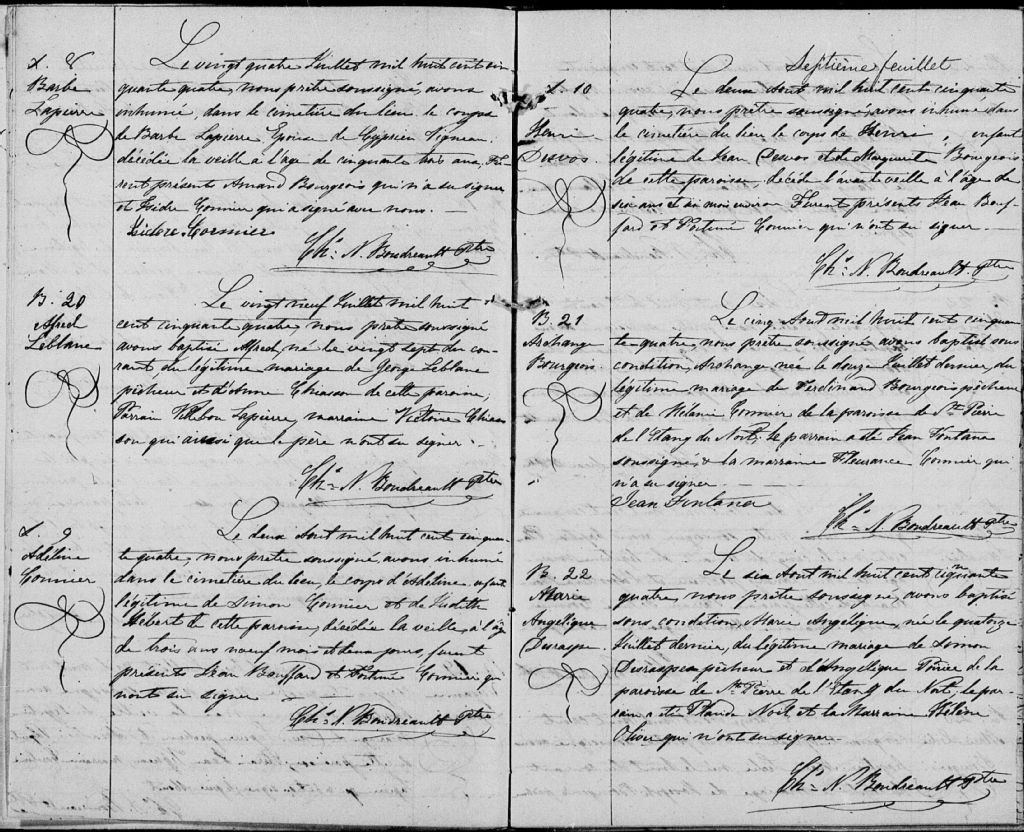 S. 8
Barbe
Lapierre
Le vingt quatre Juillet mil huit cent cin
quante quatre, nous prêtre soussigné, avons
inhumé, dans le cimetière du lieu, le corps
de Barbe Lapierre Epouse de Cyprien Vigneau
décédée la veille à l'âge de cinquante trois ans, Fu-
rent présents Amand Bourgeois qui n'a su signer
et Isidre Cormier qui a signé avec nous. —
Isidore Cormier
Chs. N. Boudreault Ptre
B. 20
Alfred
Leblanc
Le vingt neuf Juillet mil huit
cent cinquante quatre, nous prêtre soussigné
avons baptisé Alfred, né le vingt sept du cou-
rant du légitime mariage de George Leblanc
pêcheur et d'Anne Chiasson de cette paroisse,
Parrain Lapierre, marraine Victoire Chias
son qui aussi que le père n'ont su signer. -
Chs. N. Boudreault Ptre
S. 9
Adeline
Cormier
Le deux Aout mil huit cent cinquan-
te quatre, nous prêtre soussigné, avons inhumé
dans le cimetière du lieu, le corps d'Adeline enfant
légitime de Simon Cormier et de Judith
Hebert de cette paroisse, décédée la veille, à l'âge
de trois ans neuf mois et deux jours, furent
présents Jean Bouffard et Fortuné Cormier qui
n'ont su signer
Chs. N. Boudreault Ptre
Septième feuillet
S. 10
Henri
Desvos
Le deux Aout mil huit cent cinquante
quatre, nous prêtre soussigné, avons inhumé dans
le cimetière du lieu le corps de Henri, enfant
légitime de Jean Desvos et de Marguerite Bourgeois
de cette paroisse, décédé l'avant veille à l'âge de
six ans et un mois environ Furent présents Jean Bouf-
fard et Fortuné Cormier qui n'ont su signer. —
Chs. N. Boudreault Ptre
B. 21
Archange
Bourgeois
Le cinq Aout mil huit cent cinquan-
te quatre, nous prêtre soussigné avons baptisé sous
condition, Archange née le douze Juillet dernier, du
légitime mariage de Ferdinand Bourgeois pêcheur
et de Mélanie Cormier de la paroisse de St. Pierre
de l'Etang du Nord; le parrain a été Jean Fontana
soussigné, & la marraine Fleurance Cormier qui
n'a su signer. — — —
Jean Fontana
Chs. N. Boudreault Ptre
B. 22
Marie
Angelique
Desraspe
Le six Aout mil huit cent cinquante
quatre, nous prêtre soussigné, avons baptisé
sous condition Marie Angelique, née le quatorze
Juillet dernier, du légitime mariage de Simon
Desraspes pêcheur et d'Angelique de la
paroisse de St. Pierre de l'Etang du Nord; le par-
rain a été Noël et la Marraine Hélène
qui n'ont su signer. —
Chs. N. Boudreault Ptre